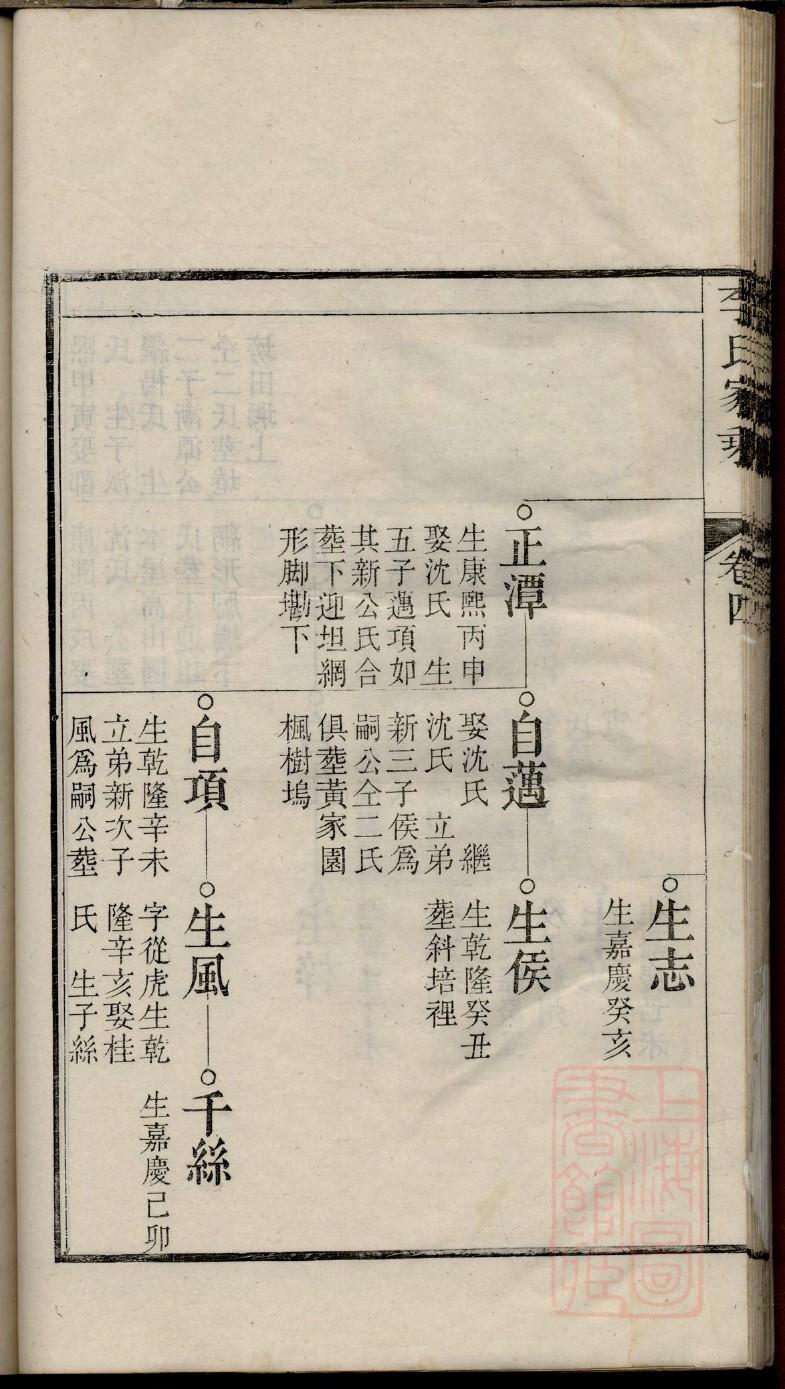 李氏家乘
卷四
生志
生嘉慶癸亥
正潭
生康熙丙申
娶沈氏　生
五子邁項如
其新公氏合
塟下迎坦網
形脚墈下
自邁
娶沈氏　繼
沈氏　立弟
新三子侯爲
嗣公仝二氏
俱塟黃家園
楓樹塢
生侯
生乾隆癸丑
塟斜培裡
自項
生乾隆辛未
立弟新次子
風爲嗣公塟
生風
字從虎生乾
隆辛亥娶桂
氏　生子絲
千絲
生嘉慶己卯
上海圖
書館藏